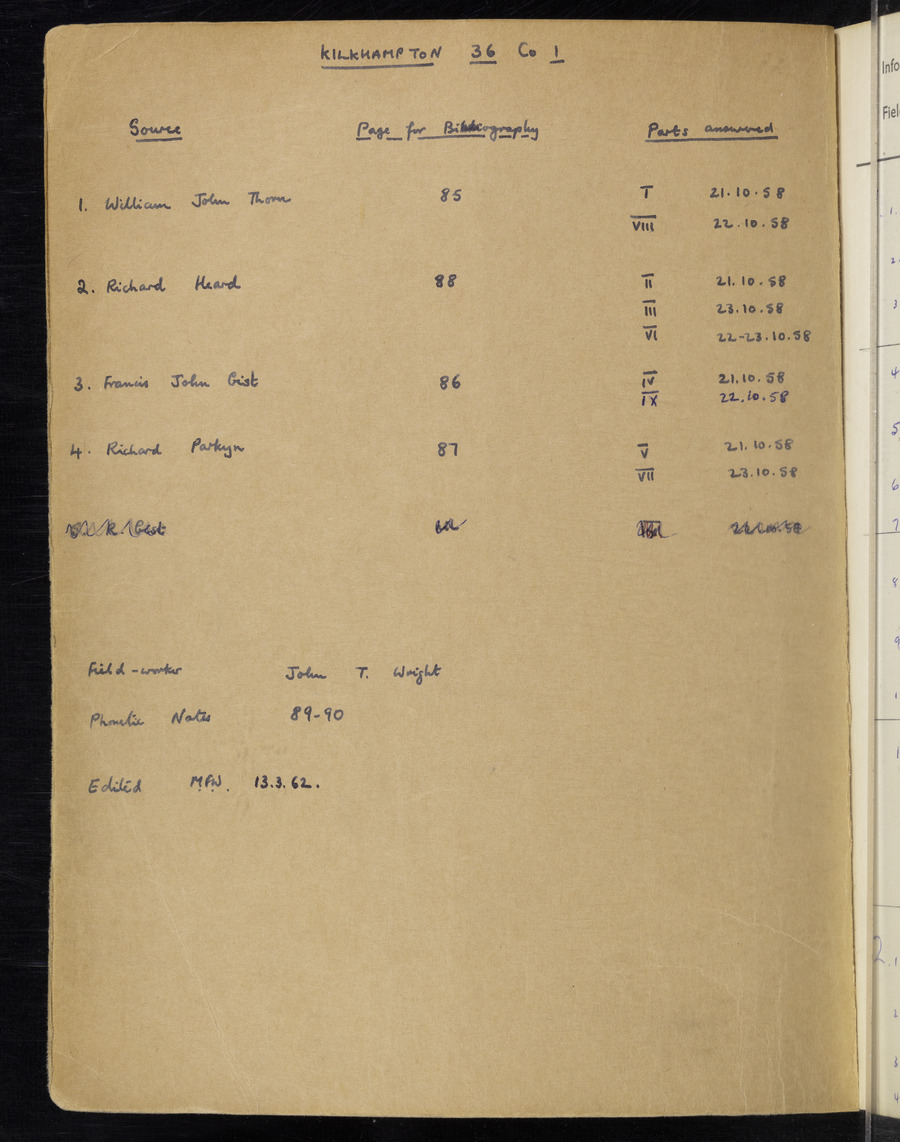 KILKHAMPTON 36 Co 1
Source Page for Bibliography Parts answered
1. William John Thorn 85 I 21.10.58
VIII 22.10.58
2. Richard Heard 88 II 21.10.58
III 23.10.58
VI 22-23.10.58
3. Francis John Gist 86 IV 21.10.58
IX 22.10.58
4. Richard Parkyn 87 V 21.10.58
VII 23.10.58
5. R. Gist
Field-worker John T. Wright
Phonetic Notes 89-90
Edited M.F.W. 13.3.62.
Info
Fiel
1.
2
3
4
5
6
7
8
9
1
1
2.1
2
3
4